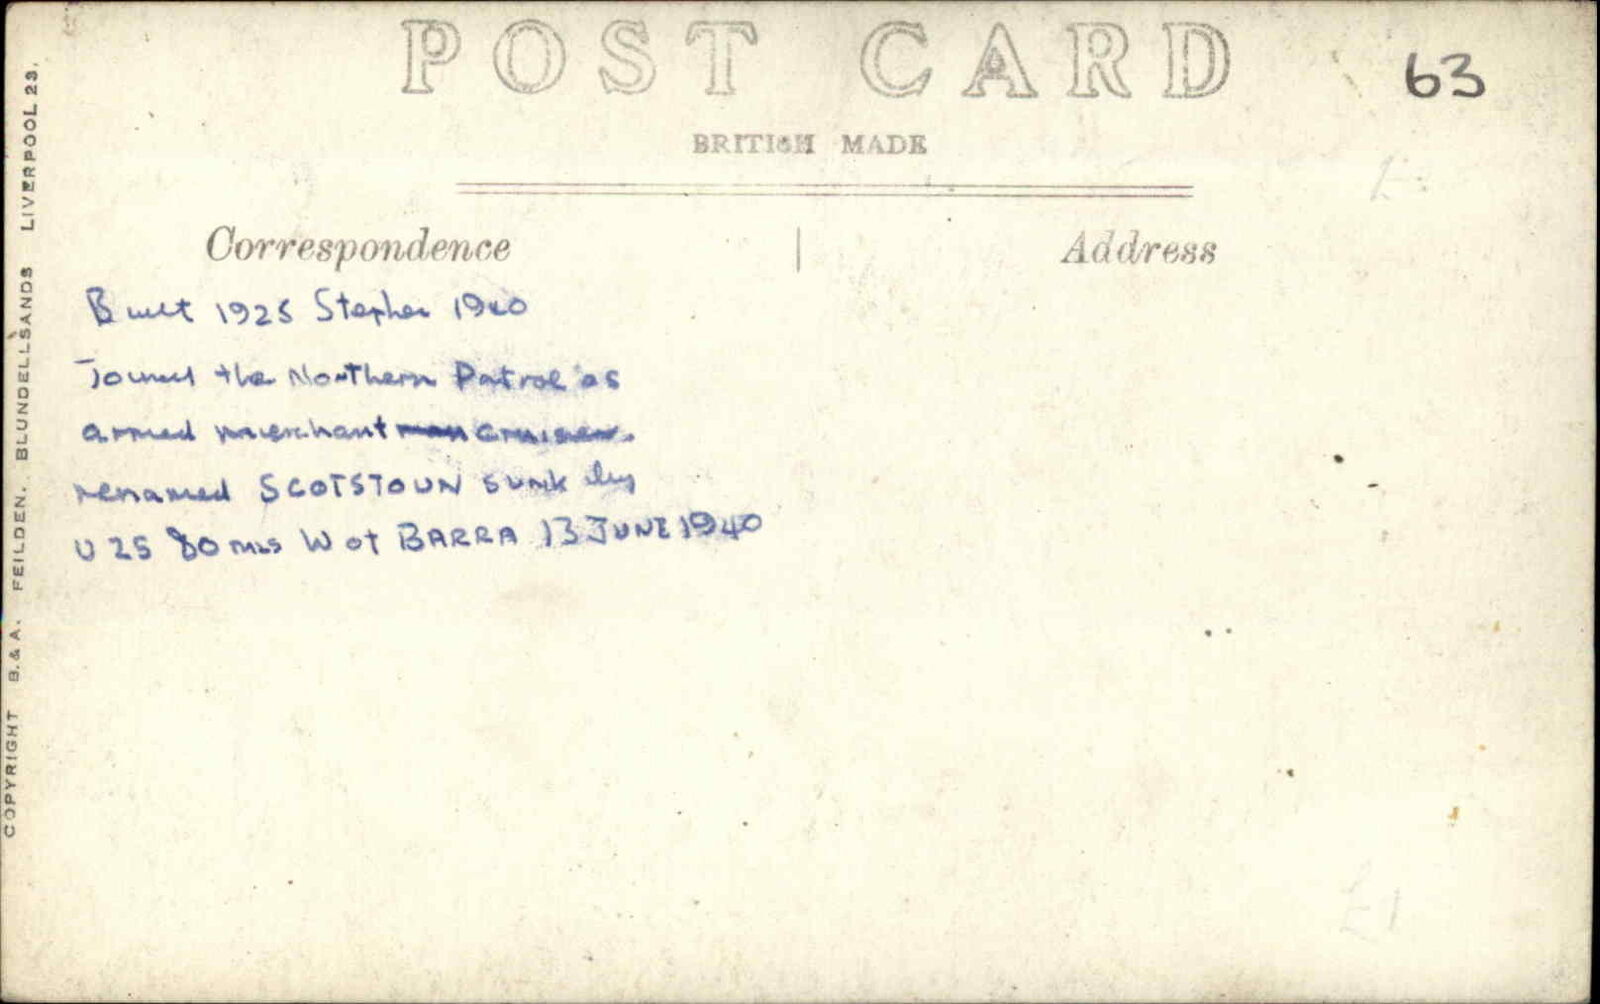 POST CARD
63
BRITISH MADE
Correspondence | Address
Built 1925 Stephen 1940
Joined the Northern Patrol as
armed merchant man cruiser.
renamed SCOTSTOUN sunk by
U 25 80 mls W of BARRA 13 JUNE 1940
£1
COPYRIGHT B. & A. FEILDEN. BLUNDELLSANDS LIVERPOOL 23.